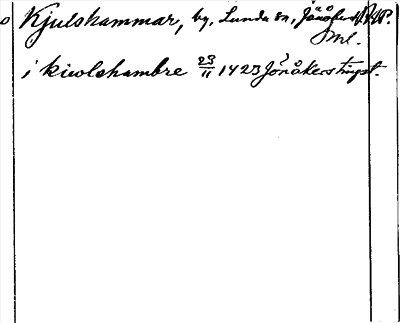 o Kjulshammar, by, Lunda sn, Jönåkers
Sml.
i kiwlshambre 23/11 1423 Jönåkers tingst.